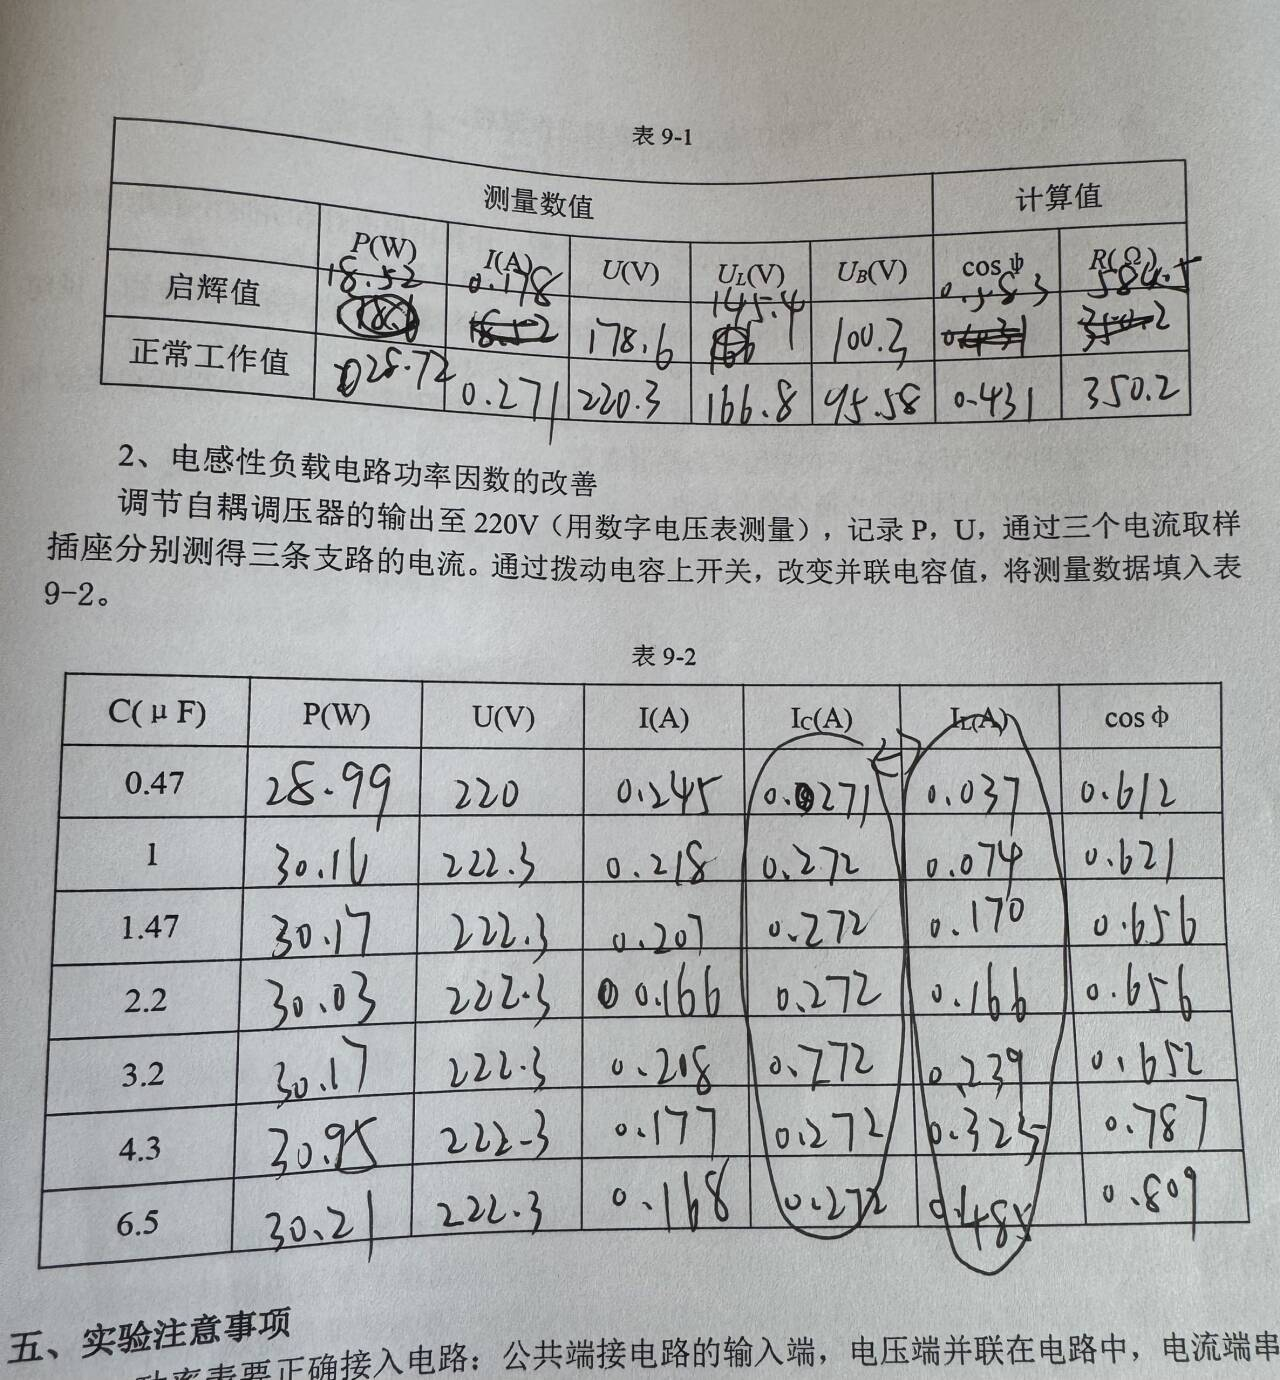 表 9-1
测量数值 计算值
P(W) I(A) U(V) U_L(V) U_B(V) cos ψ R(Ω)
启辉值 18.52 0.178 178.6 145.4 100.3 0.583 584.5
正常工作值 28.72 0.271 220.3 166.8 95.58 0.431 350.2
2、电感性负载电路功率因数的改善
调节自耦调压器的输出至 220V（用数字电压表测量），记录 P，U，通过三个电流取样
插座分别测得三条支路的电流。通过拨动电容上开关，改变并联电容值，将测量数据填入表
9-2。
表 9-2
C(μF) P(W) U(V) I(A) Ic(A) I_L(A) cos φ
0.47 28.99 220 0.245 0.271 0.037 0.612
1 30.16 222.3 0.218 0.272 0.074 0.621
1.47 30.17 222.3 0.207 0.272 0.170 0.656
2.2 30.03 222.3 0.166 0.272 0.166 0.656
3.2 30.17 222.3 0.208 0.272 0.239 0.652
4.3 30.95 222.3 0.177 0.272 0.325 0.787
6.5 30.21 222.3 0.168 0.272 0.485 0.809
五、实验注意事项
功率表要正确接入电路：公共端接电路的输入端，电压端并联在电路中，电流端串